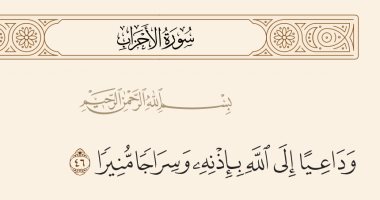 سُورَةُ الأَحْزَابِ
بِسْمِ اللَّهِ الرَّحْمَٰنِ الرَّحِيمِ
وَدَاعِيًا إِلَى اللَّهِ بِإِذْنِهِۦ وَسِرَاجًا مُّنِيرًا ٤٦